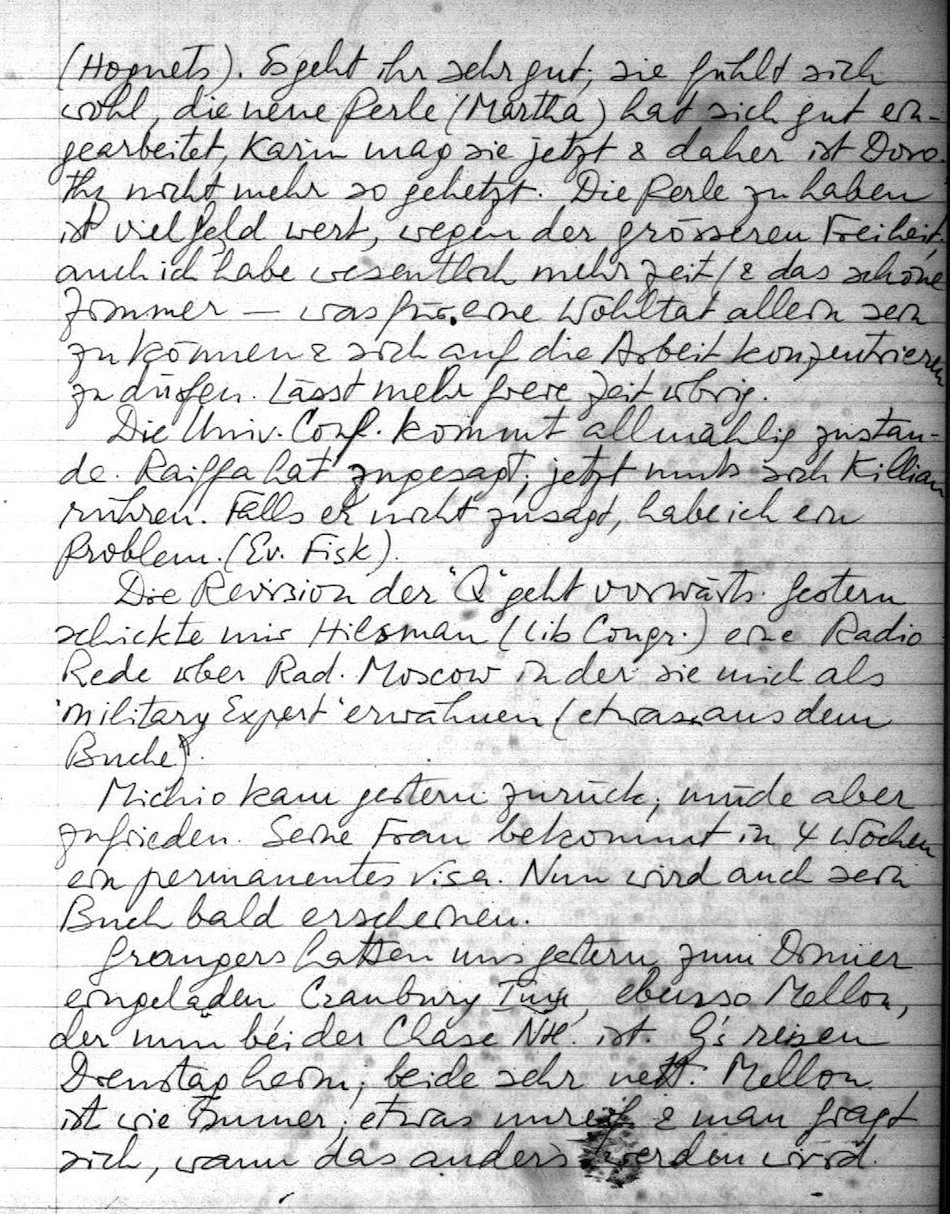 (Hognets). Es geht ihr sehr gut; sie fühlt sich
wohl, die neue Perle (Martha) hat sich gut ein-
gearbeitet, Karin mag sie jetzt & daher ist Doro-
thy nicht mehr so gehetzt. Die Perle zu haben
ist viel Geld wert, wegen der grösseren Freiheit,
auch ich habe wesentlich mehr Zeit (& das schöne
Zimmer — was für eine Wohltat allein sein
zu können & sich auf die Arbeit konzentrieren
zu dürfen. Lässt mehr freie Zeit übrig.
Die Univ. Conf. kommt allmählig zustan-
de. Raiffa hat zugesagt; jetzt muss sich Killian
rühren. Falls er nicht zusagt, habe ich ein
Problem. (Ev. Fisk).
Die Revision der "Q" geht vorwärts. Gestern
schickte mir Hilsman (Lib Congr.) eine Radio
Rede über Rad. Moscow in der sie mich als
"Military Expert" erwähnen (etwas aus dem
Buche).
Michio kam gestern zurück, müde aber
zufrieden. Seine Frau bekommt in 4 Wochen
ein permanentes Visa. Nun wird auch sein
Buch bald erscheinen.
Grangers hatten uns gestern zum Dinner
eingeladen, Cranbury Inn, ebenso Mellon,
der nun bei der Chase Ntl. ist. G's reisen
Dienstag heim; beide sehr nett. Mellon
ist wie immer, etwas unreif & man fragt
sich, wann das anders werden wird.